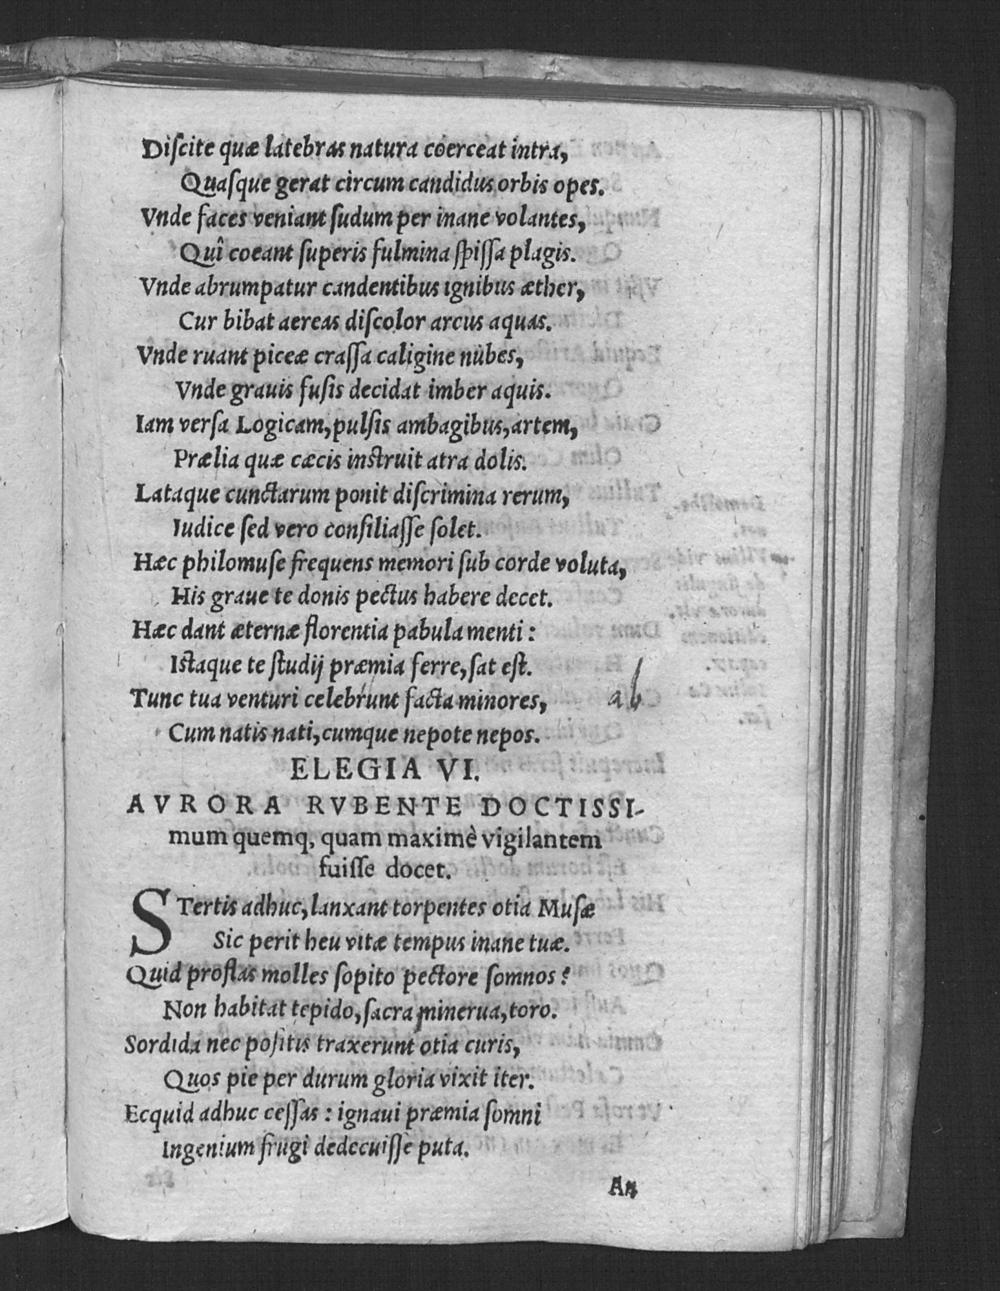 Diſcite quæ latebras natura coërceat intra,
Quaſque gerat circum candidus orbis opes.
Vnde faces veniant ſudum per inane volantes,
Quî coeant ſuperis fulmina ſpiſſa plagis.
Vnde abrumpatur candentibus ignibus æther,
Cur bibat aereas diſcolor arcus aquas.
Vnde ruant piceæ craſſa caligine nubes,
Vnde grauis fuſis decidat imber aquis.
Iam verſa Logicam, pulſis ambagibus, artem,
Prælia quæ cæcis inſtruit atra dolis.
Lataque cunctarum ponit diſcrimina rerum,
Iudice ſed vero conſiliaſſe ſolet.
Hæc philomuſe frequens memori ſub corde voluta,
His graue te donis pectus habere decet.
Hæc dant æternæ florentia pabula menti:
Iſtaque te ſtudij præmia ferre, ſat eſt.
Tunc tua venturi celebrunt facta minores,
ab
Cum natis nati, cumque nepote nepos.
ELEGIA VI.
AVRORA RVBENTE DOCTISSI-
mum quemq, quam maximè vigilantem
fuiſſe docet.
STertis adhuc, lanxant torpentes otia Muſæ
Sic perit heu vitæ tempus inane tuæ.
Quid proflas molles ſopito pectore ſomnos?
Non habitat tepido, ſacra minerua, toro.
Sordida nec poſitis traxerunt otia curis,
Quos pie per durum gloria vixit iter.
Ecquid adhuc ceſſas: ignaui præmia ſomni
Ingenium frugi dedecuiſſe puta.
An